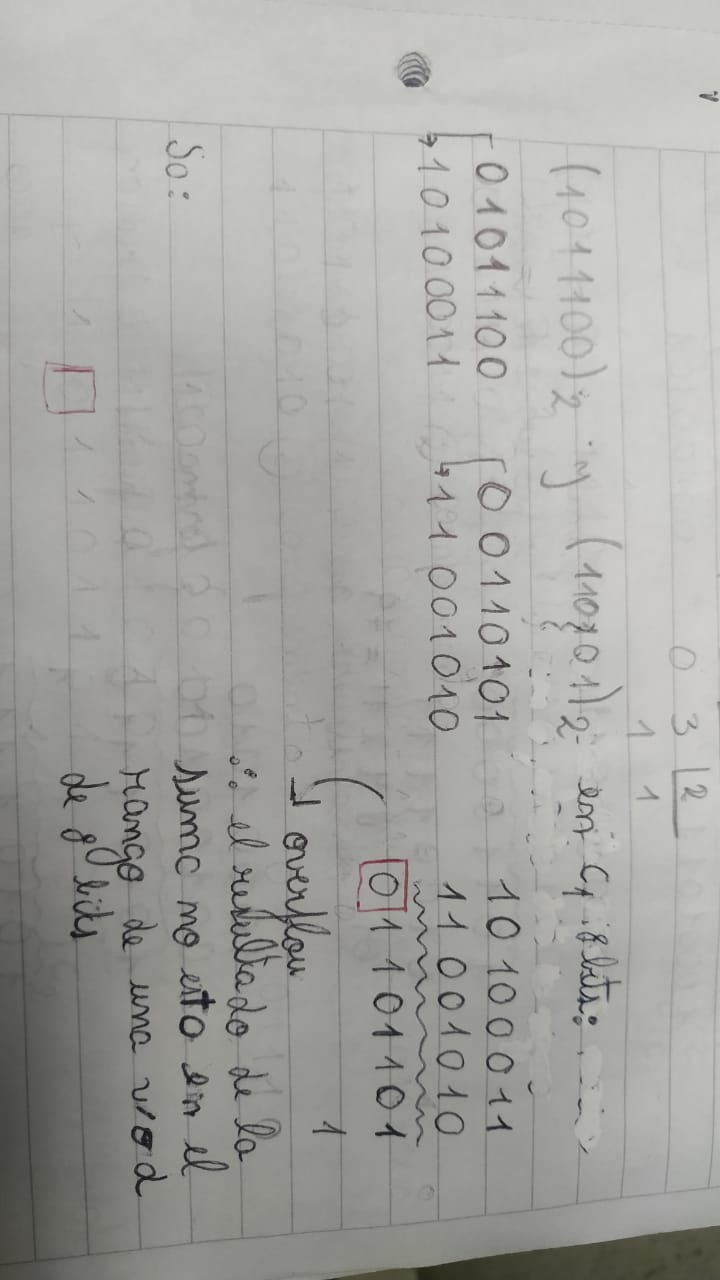 0 3 2
1 1
(1011100)2 y (110101)2 en C1 8 bits:
01011100 00110101 10100011
10100011 11001010 11001010
01101101
1
overflou
∴ el resultado de la
suma no esta en el
So:
rango de una word
de 8 bits